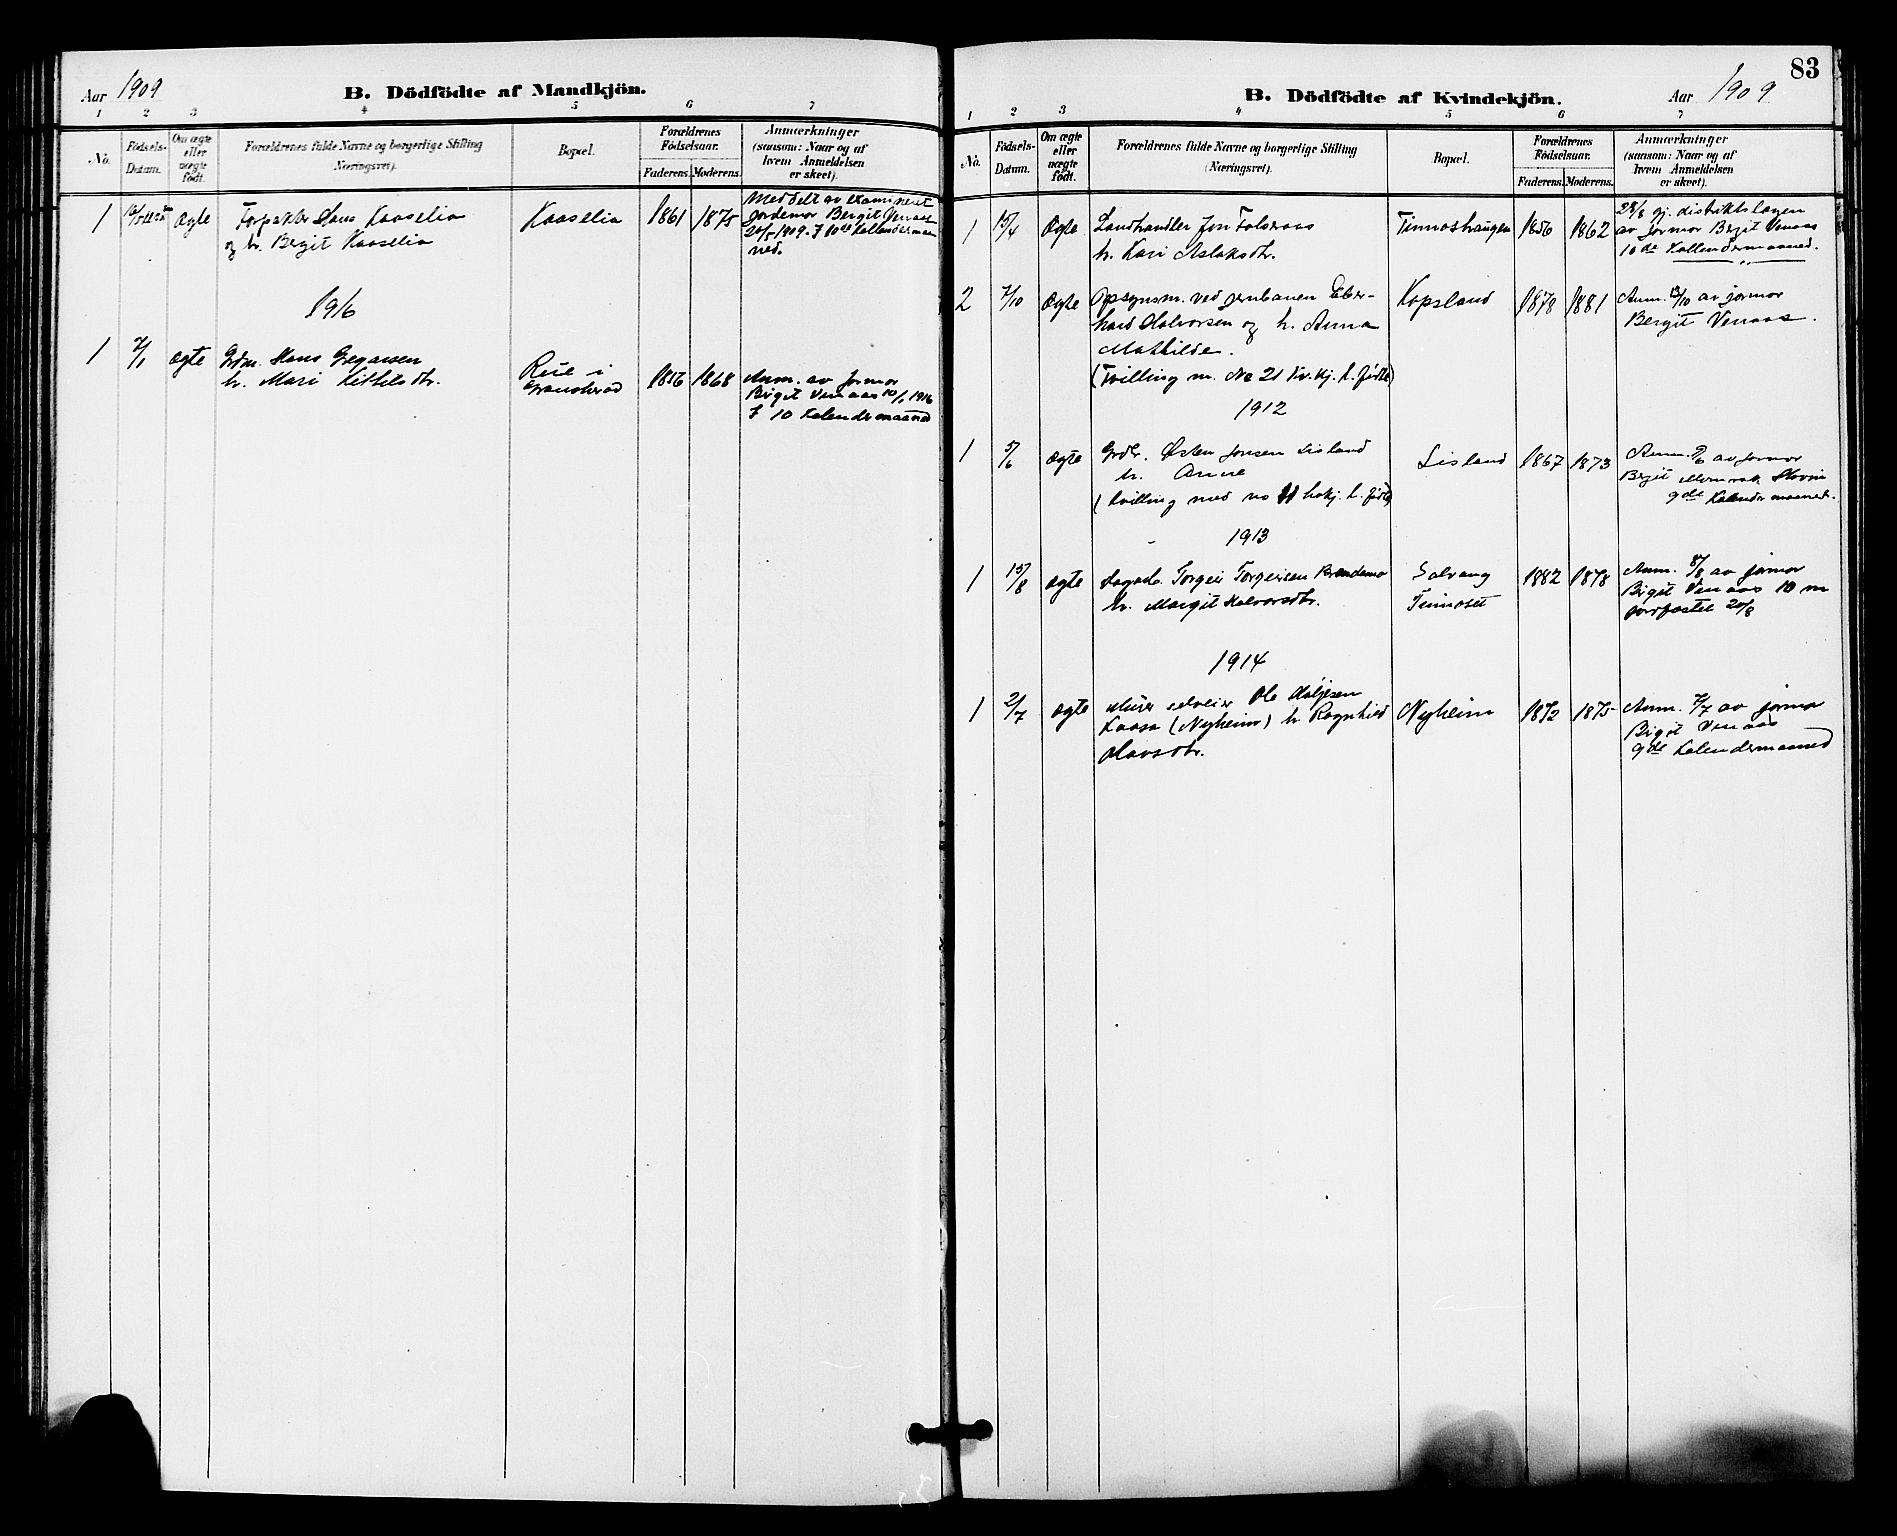 Aar 1909
B. Dödfödte af Mandkjön.
1 2 3 4 5 6 7
No.
Födsels-
Datum.
Om ægte
eller
uægte
födt.
Forældrenes fulde Navne og borgerlige Stilling
(Næringsvei).
Bopæl.
Forældrenes
Födselsaar.
Faderens. Moderens.
Anmærkninger
(saasom: Naar og af
hvem Anmeldelsen
er skeet).
1 ægte Hans Kaaselia Kaaselia 1861 1875
og h. Bergit Kaaselia
Meddelt av examineret
jordemor Bergit Venaas
20/5 1909. I 10de Kallendermaa-
ned.
1916
1 7/1 ægte Grdm. Hans Gregarsen
h. Mari Kittilsdtr.
Rue i
Gransherad
1868
Anm. av jormor
Birgit Venaas 10/1 1916
I 10 Kalendermaaned
83
B. Dödfödte af Kvindekjön.
Aar 1909
1 2 3 4 5 6 7
No.
Födsels-
Datum.
Om ægte
eller
uægte
födt.
Forældrenes fulde Navne og borgerlige Stilling
(Næringsvei).
Bopæl.
Forældrenes
Födselsaar.
Faderens. Moderens.
Anmærkninger
(saasom: Naar og af
hvem Anmeldelsen
er skeet).
1 15/4 Ægte Landhandler Jon Folseraas
h. Kari Aslaksdtr.
Tinnoshaugen 1856 1862
28/8 gj. distriktslægen
av jormor Bergit Venaas
10de Kallendermaaned.
2 7/10 Ægte Opsynsm. ved jernbanen Eber-
hard Halvorsen og h. Anna
Mathilde.
(Tvilling m. No 21 Kv.kj. l. fødte)
Kopsland 1878 1881
Anm. 13/10 av jormor
Bergit Venaas.
1912
1 5/6 ægte Grdbr. Østen Jonsen Lisland
h. Anne
(tvilling med no 11 l. fødte)
Lisland 1867 1873
Anm. av jormor
Bergit Hovin
9de Kalendermaaned.
1913
1 15/8 ægte Torgeir Torgeirsen
h. Margit Halvorsdtr.
Solvang
Tinnoset
1882 1878
Anm. av jormor
Birgit Venaas 10 m
jordfæstet 20/8
1914
1 2/7 ægte selveier Ole Høljesen
Kaasa (Nyheim) h. Ragnhild
Hansdtr.
Nyheim 1872 1875
Anm. 7/7 av jormor
Birgit Venaas
9de Kalendermaaned